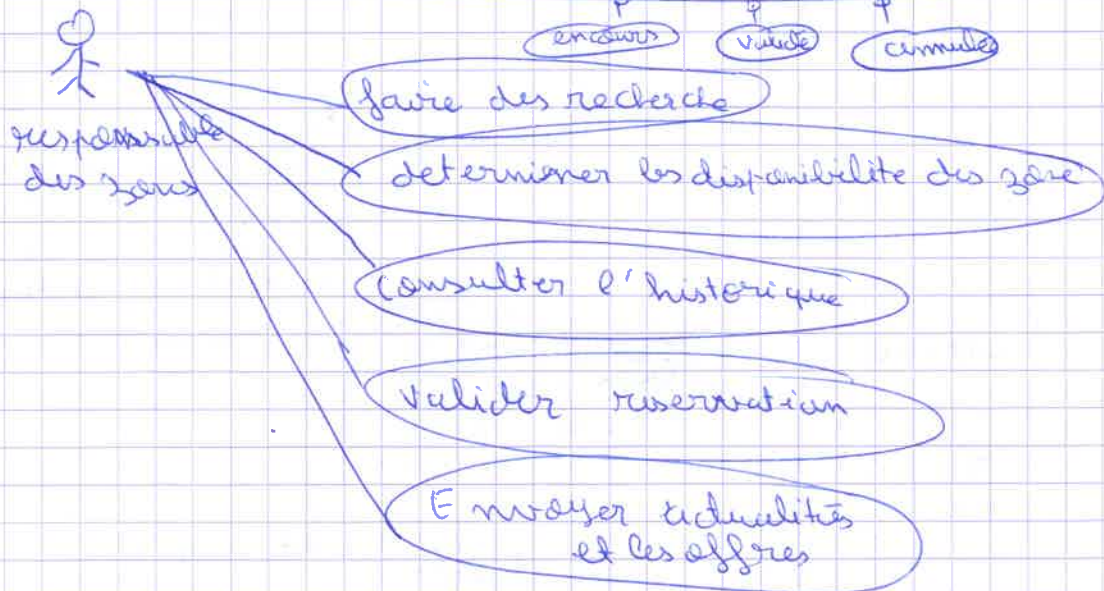 encours validé annulé
faire des recherche
responsable
des zones
determiner les disponibilite des zone
consulter l'historique
valider reservation
Envoyer actualités
et les offres